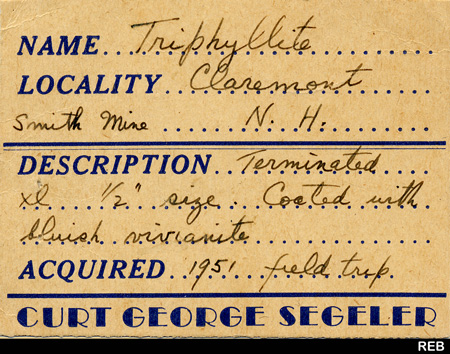 NAME Triphyllite
LOCALITY Claremont
Smith Mine N. H.
DESCRIPTION Terminated
xl 1/2" size. Coated with
bluish vivianite
ACQUIRED 1951 field trip.
CURT GEORGE SEGELER
REB